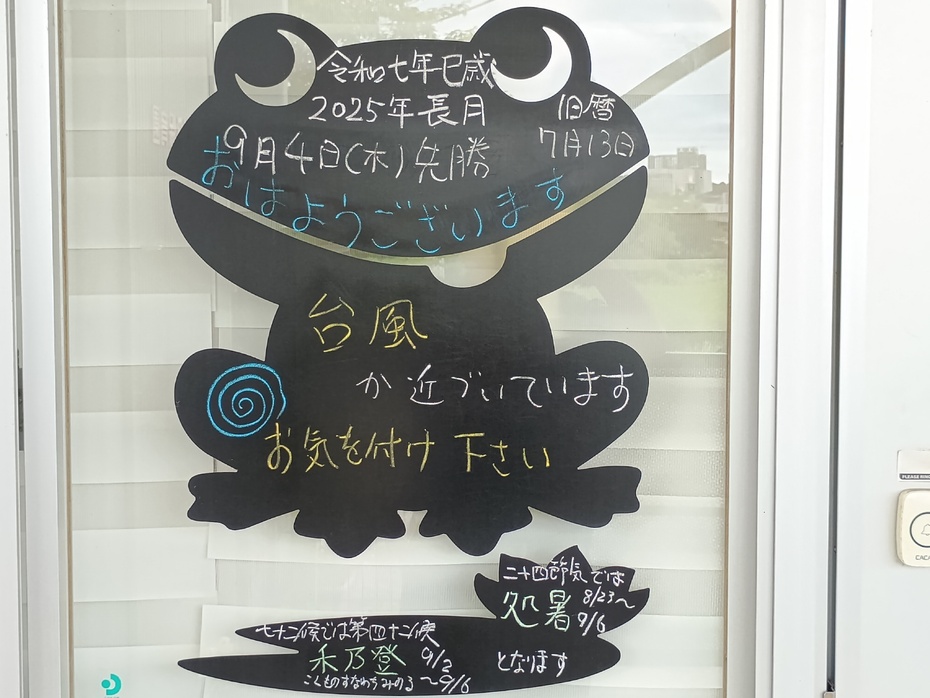 令和七年巳歳
2025年長月
旧暦
7月13日
9月4日(木)先勝
おはようございます
台風
か近づいています
お気を付け下さい
二十四節気では
処暑 8/23～
9/6
七十二候では第四十二候
禾乃登 9/2
こくものすなわちみのる ～9/6
となります
PLEASE RING